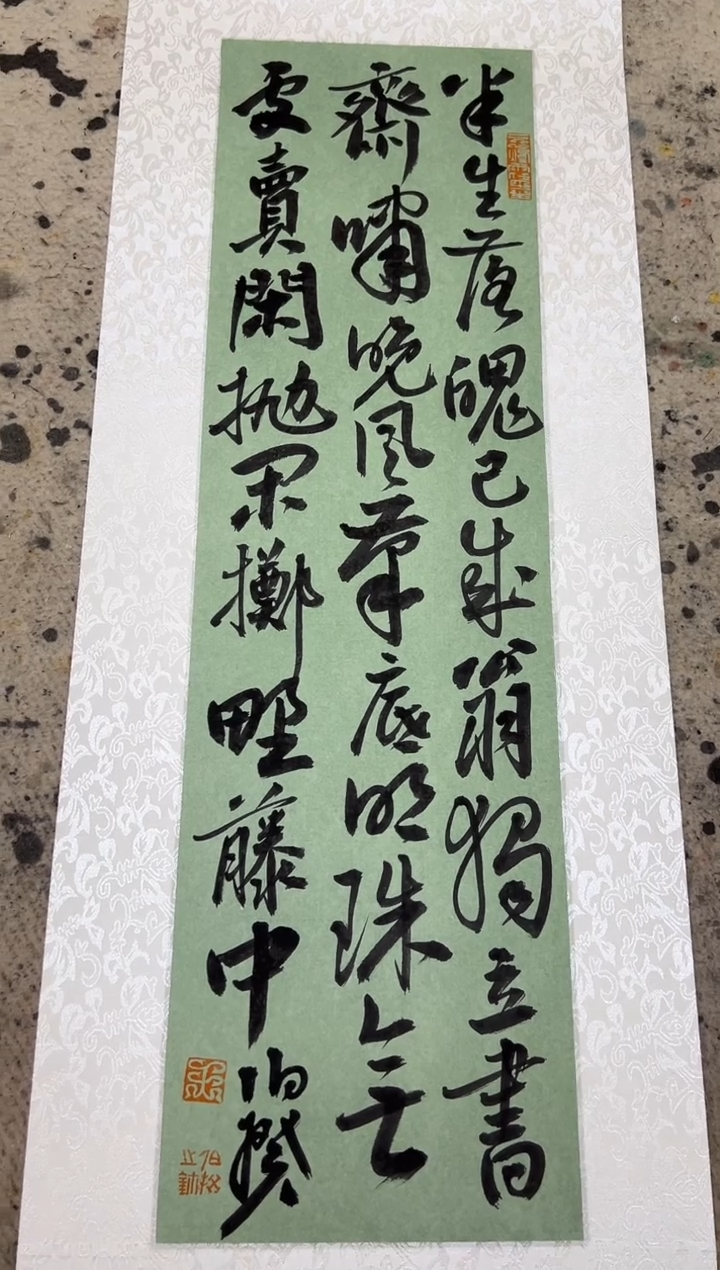 半生落魄已成翁獨立書
齋嘯晚風筆底明珠無
處賣閑抛閑擲野藤中 伯揆